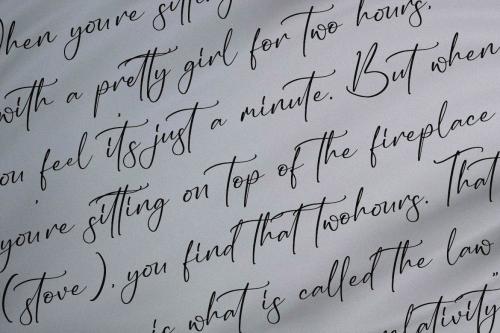 When you're sitting
with a pretty girl for two hours.
you feel it's just a minute. But when
you're sitting on top of the fireplace
(stove), you find that twohours. That
is what is called the law
relativity"